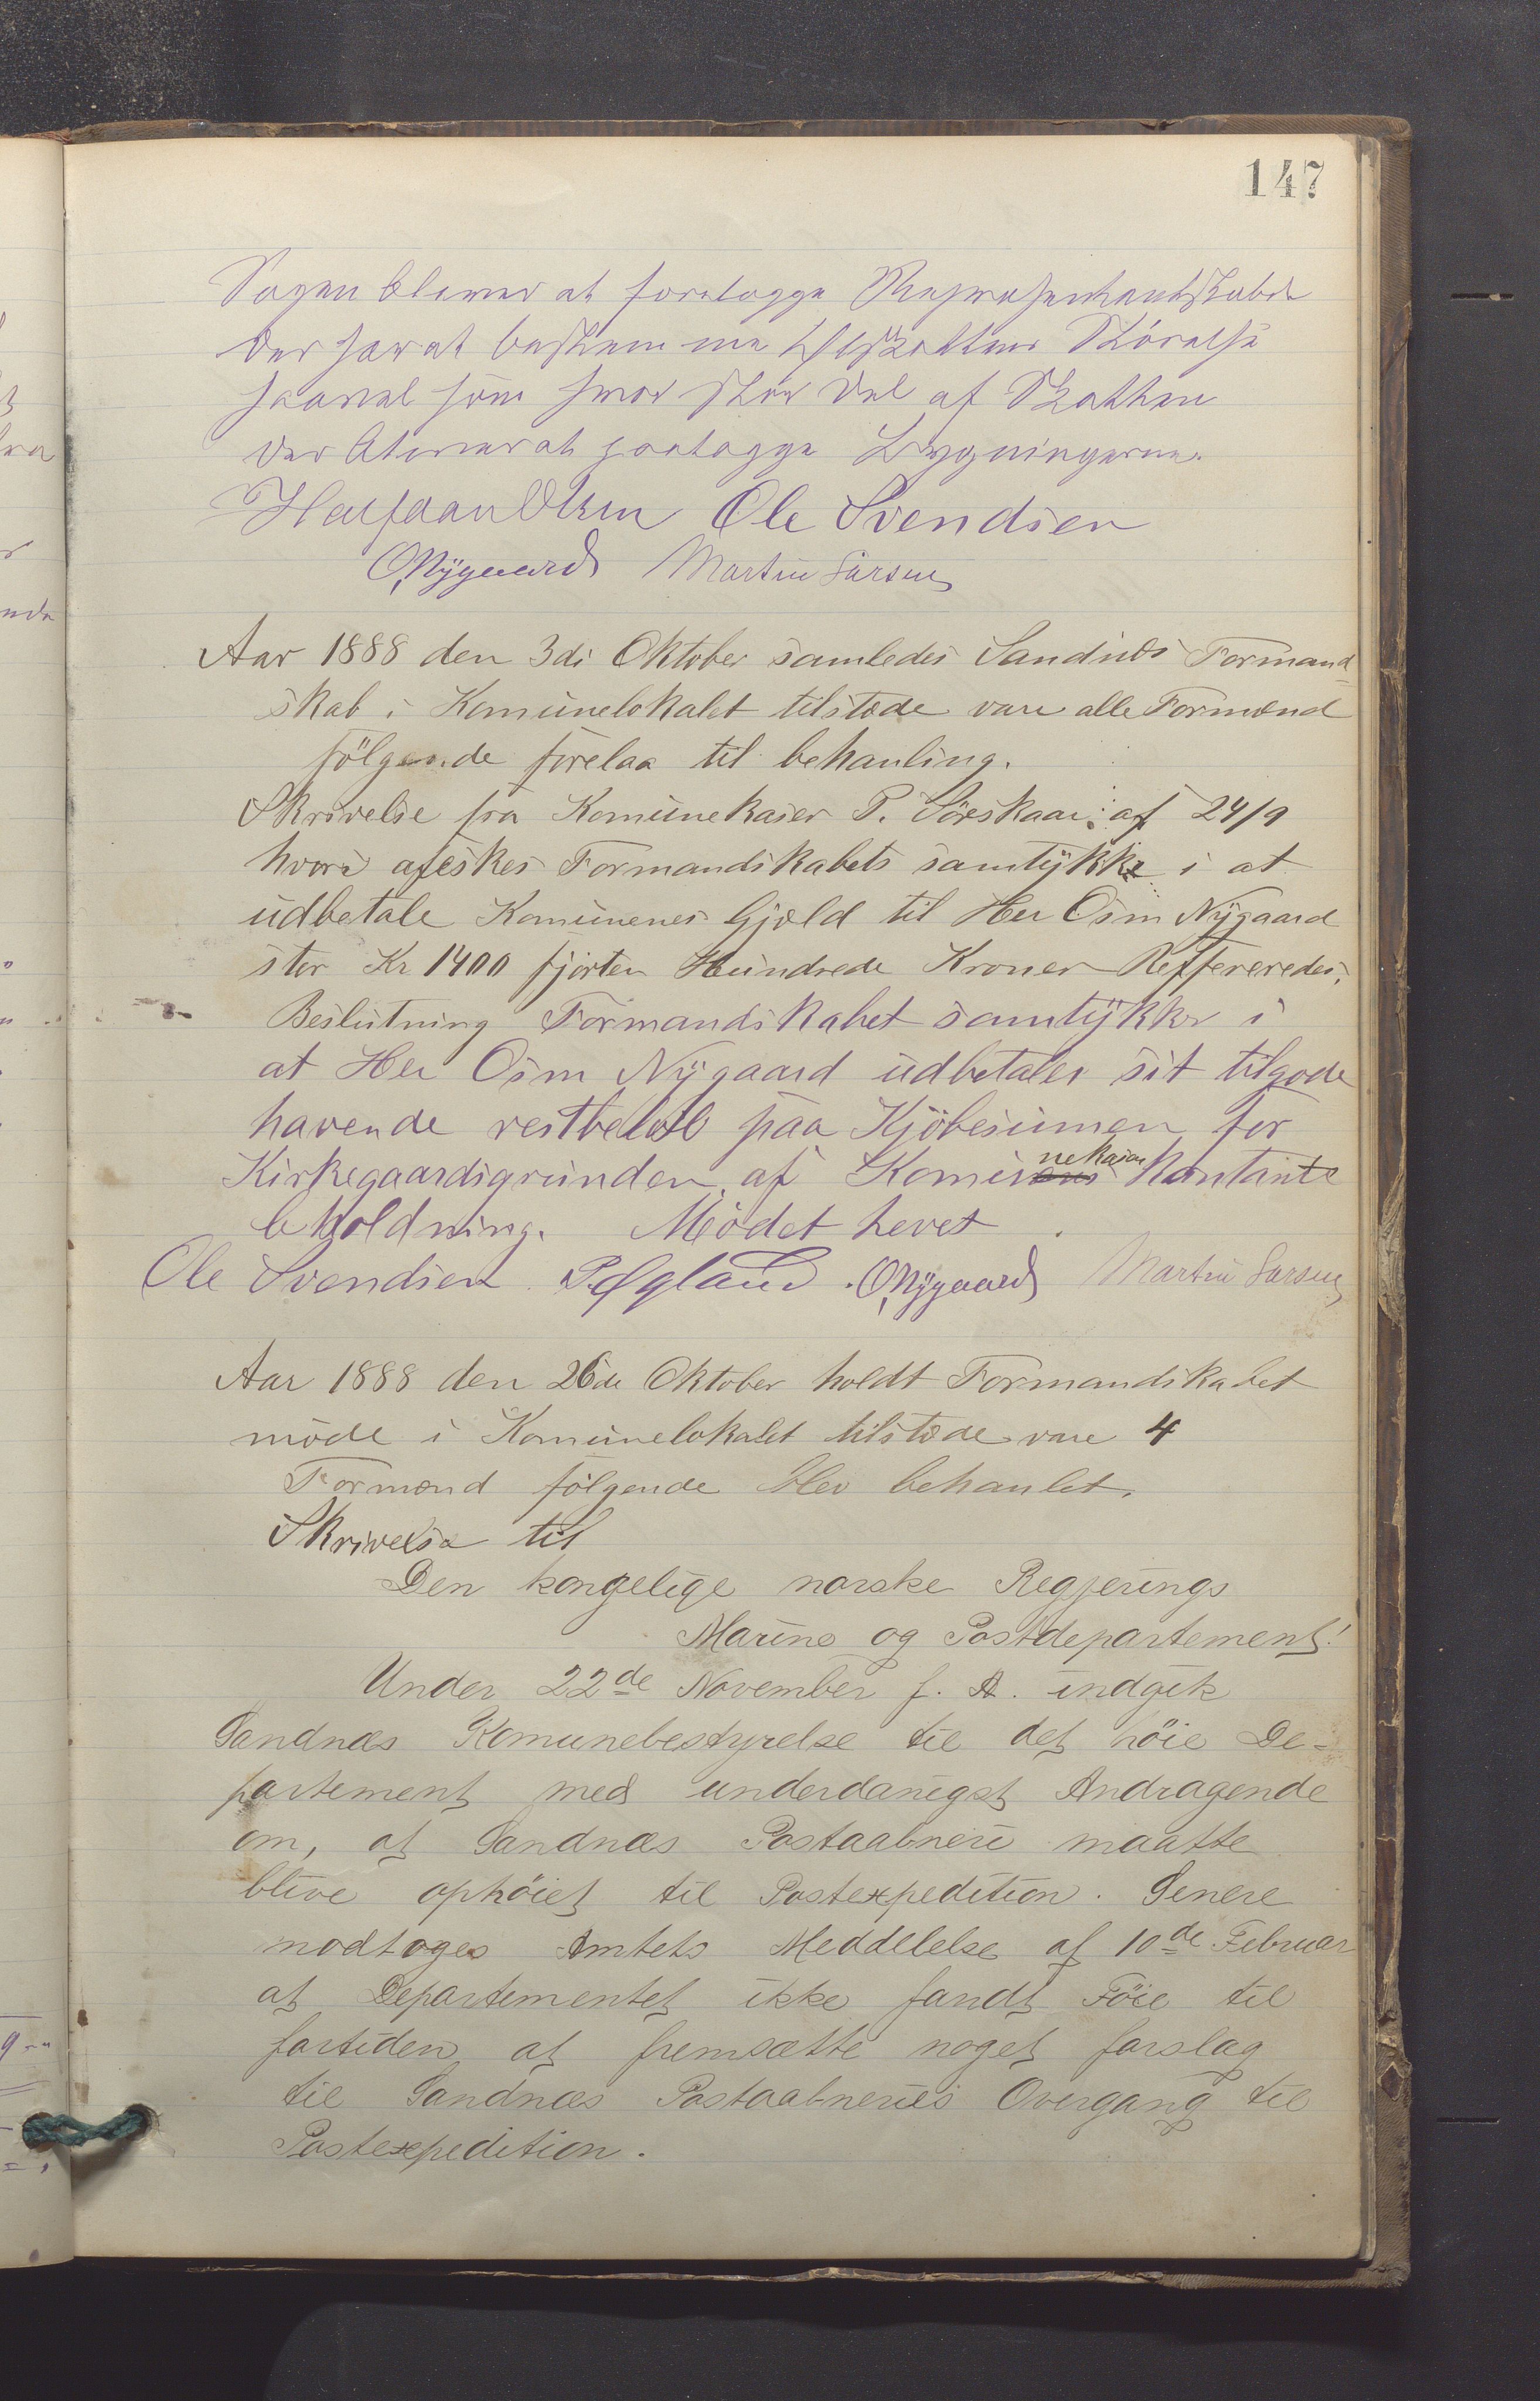 147
Sagen bliver at forelægge Repræsentantskabet
der har at bestemme Ølskattens Störelse
saavel som hvor stor Del af Skatten
der bliver at paalægge Bygningerne.
Halfdan Olsen Ole Svendsen
O Nÿgaard Martin Larsen
Aar 1888 den 3di Oktober samledes Sandnes Formand-
skab i Komunelokalet tilstede vare alle Formænd
fölgende forelaa til behanling.
Skrivelse fra Komunekaser P. Söreskaar: af 24/9
hvori afeskes Formandskabets samtÿkke i at
udbetale Komunenes Gjæld til Her Osm Nÿgaard
stor Kr 1400 fjorten Hundrede Kroner Reffereredes.
Beslutning Formandskabet samtÿkker i
at Her Osm Nÿgaard udbetales sit tilgode
havende restbelöb paa Kjöbesumen for
Kirkegaardsgrunden af Komunekasens Kontante
beholdning. Mödet hevet.
Ole Svendsen P. Egland. O Nÿgaard Martin Larsen
Aar 1888 den 26de Oktober holdt Formandskabet
möde i Komunelokalet tilstede vare 4
Formænd fölgende blev behanlet.
Skrivelse til
Den kongelige norske Regjerings
Marine og Postdepartement!
Under 22de November f. A. indgik
Sandnæs Komunebestyrelse til det höie De-
partement med underdanigst Andragende
om, at Sandnæs Postaabneri maatte
blive ophöiet til Postexpedition. Senere
modtoges Amtets Meddelelse af 10de Februar
at Departementet ikke fandt Föie til
fortiden at fremsætte noget forslag
til Sandnæs Postaabneries Overgang til
Postexpedition.